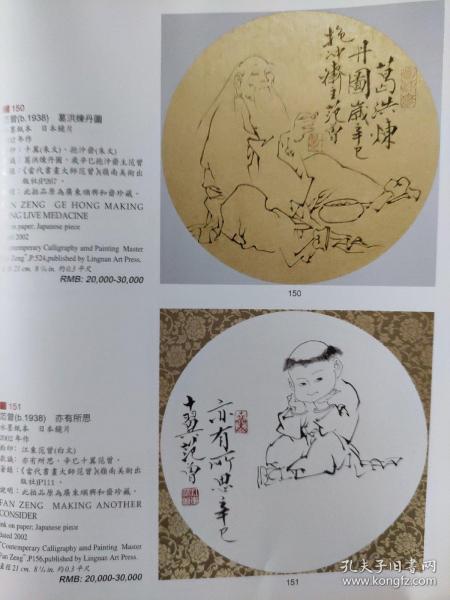 150
范曾(b.1938) 葛洪煉丹圖
水墨紙本 日本鏡片
2002年作
鈐印：十翼(朱文)、抱沖齋(朱文)
款識：葛洪煉丹圖，歲辛巳抱沖齋主范曾
著錄：《當代書畫大師范曾》(嶺南美術出
版社)P267。
說明：此拍品原為廣東順興和齋珍藏。
FAN ZENG GE HONG MAKING
LONG LIVE MEDACINE
Ink on paper; Japanese piece
dated 2002
"Contemperary Calligraphy amd Painting Master
Fan Zeng",P.524,published by Lingnan Art Press.
直徑21 cm. 8 ¼ in. 約0.3平尺
RMB: 20,000-30,000
葛洪煉
丹圖歲辛巳
抱沖齋主范曾
150
151
范曾(b.1938) 亦有所思
水墨紙本 日本鏡片
2002年作
鈐印：江東范曾(白文)
款識：亦有所思，辛巳十翼范曾。
著錄：《當代書畫大師范曾》(嶺南美術出
版社)P111。
說明：此拍品原為廣東順興和齋珍藏。
FAN ZENG MAKING ANOTHER
CONSIDER
Ink on paper; Japanese piece
dated 2002
"Contemperary Calligraphy amd Painting Master
Fan Zeng",P156,published by Lingnan Art Press.
直徑21 cm. 8 ¼ in. 約0.3平尺
RMB: 20,000-30,000
亦有所思辛巳
十翼范曾
151
孔夫子旧书网